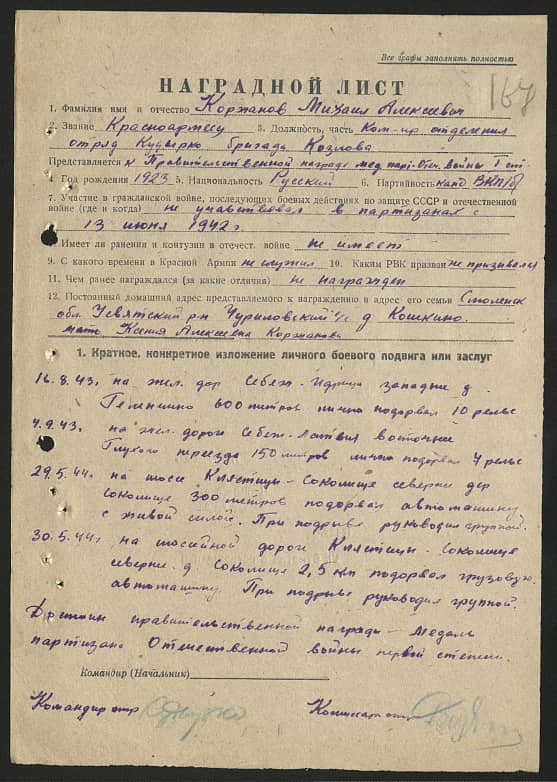 Все графы заполнять полностью
167
НАГРАДНОЙ ЛИСТ
1. Фамилия имя и отчество Коржанов Михаил Алексеевич
2. Звание Красноармеец 3. Должность, часть Ком-ир отделения
отряд Кудырко бригада Козлова
Представляется к Правительственной награде мед. парт. Отеч. войны 1 ст.
4. Год рождения 1923 5. Национальность Русский 6. Партийность канд ВКП/б
7. Участие в гражданской войне, последующих боевых действиях по защите СССР и отечественной
войне (где и когда) не учавствовал в партизанах с
13 июня 1942 г.
Имеет ли ранения и контузии в отечест. войне не имеет
9. С какого времени в Красной Армии не служил 10. Каким РВК призван не призывался
11. Чем ранее награждался (за какие отличия) не награжден
12. Постоянный домашний адрес представляемого к награждению и адрес его семьи Смоленск
обл. Усвятский р-н Чуриловский с/с д Кошкино.
мать Ксения Алексеевна Коржанова
1. Краткое, конкретное изложение личного боевого подвига или заслуг
16.8.43. на жел. дор Себеж-Идрица западне д.
600 метров лично подорвал 10 рельс
4.9.43. на жел. дороги Себеж-Латвия восточнее
Глухого переезда 150 метров лично подорвал 4 рельс
29.5.44. на шоссе Клястицы-Соколище севернее дер
Соколище 300 метров подорвал автомашину
с живой силой. При подрыве руководил группой.
30.5.44 г на шоссийной дороги Клястицы-Соколище
севернее д. Соколище 2,5 км подорвал грузовую.
автомашину. При подрыве руководил группой.
Достоин правительственной награды - Медаль
партизана Отечественной войны первой степени.
Командир (Начальник)
Командир отр Комиссар отр